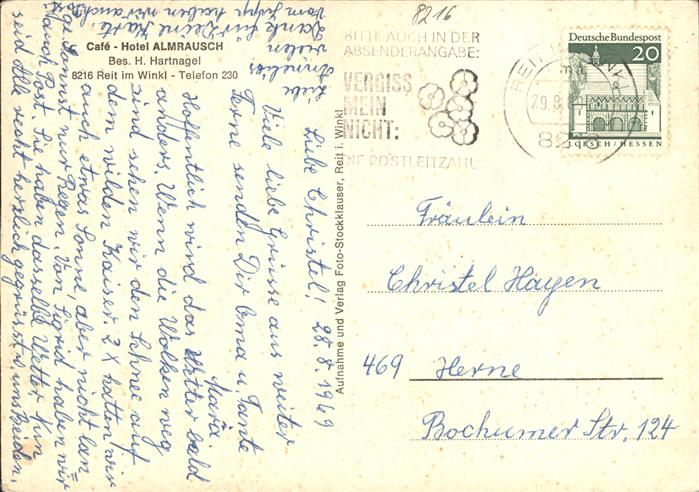 8216
Café - Hotel ALMRAUSCH
Bes. H. Hartnagel
8216 Reit im Winkl - Telefon 230
BITTE AUCH IN DER
ABSENDERANGABE:
VERGISS
MEIN
NICHT:
DIE POSTLEITZAHL
REIT IM WINKL
29.8.
8216
Deutsche Bundespost
20
LORSCH/HESSEN
Aufnahme und Verlag Foto-Stockklauser, Reit i. Winkl
Liebe Christel! 28.8.1969
Viele liebe Grüsse aus weiter
Ferne senden Dir Oma u. Tante
Maria.
Hoffentlich wird das Wetter bald
anders. Wenn die Wolken weg
sind sehen wir den Schnee auf
dem wilden Kaiser. 2x hatten wir
auch etwas Sonne, aber nicht lan-
ge. Sonst nur Regen. Von Sigrid haben wir
auch Post. Sie haben dasselbe Wetter.
seid Alle recht herzlich gegrüsst v. uns Beiden.
Liebe
vielen
Dank für Deine Karte.
haben wir auch
Fräulein
Christel Hagen
469 Herne
Bochumer Str. 124